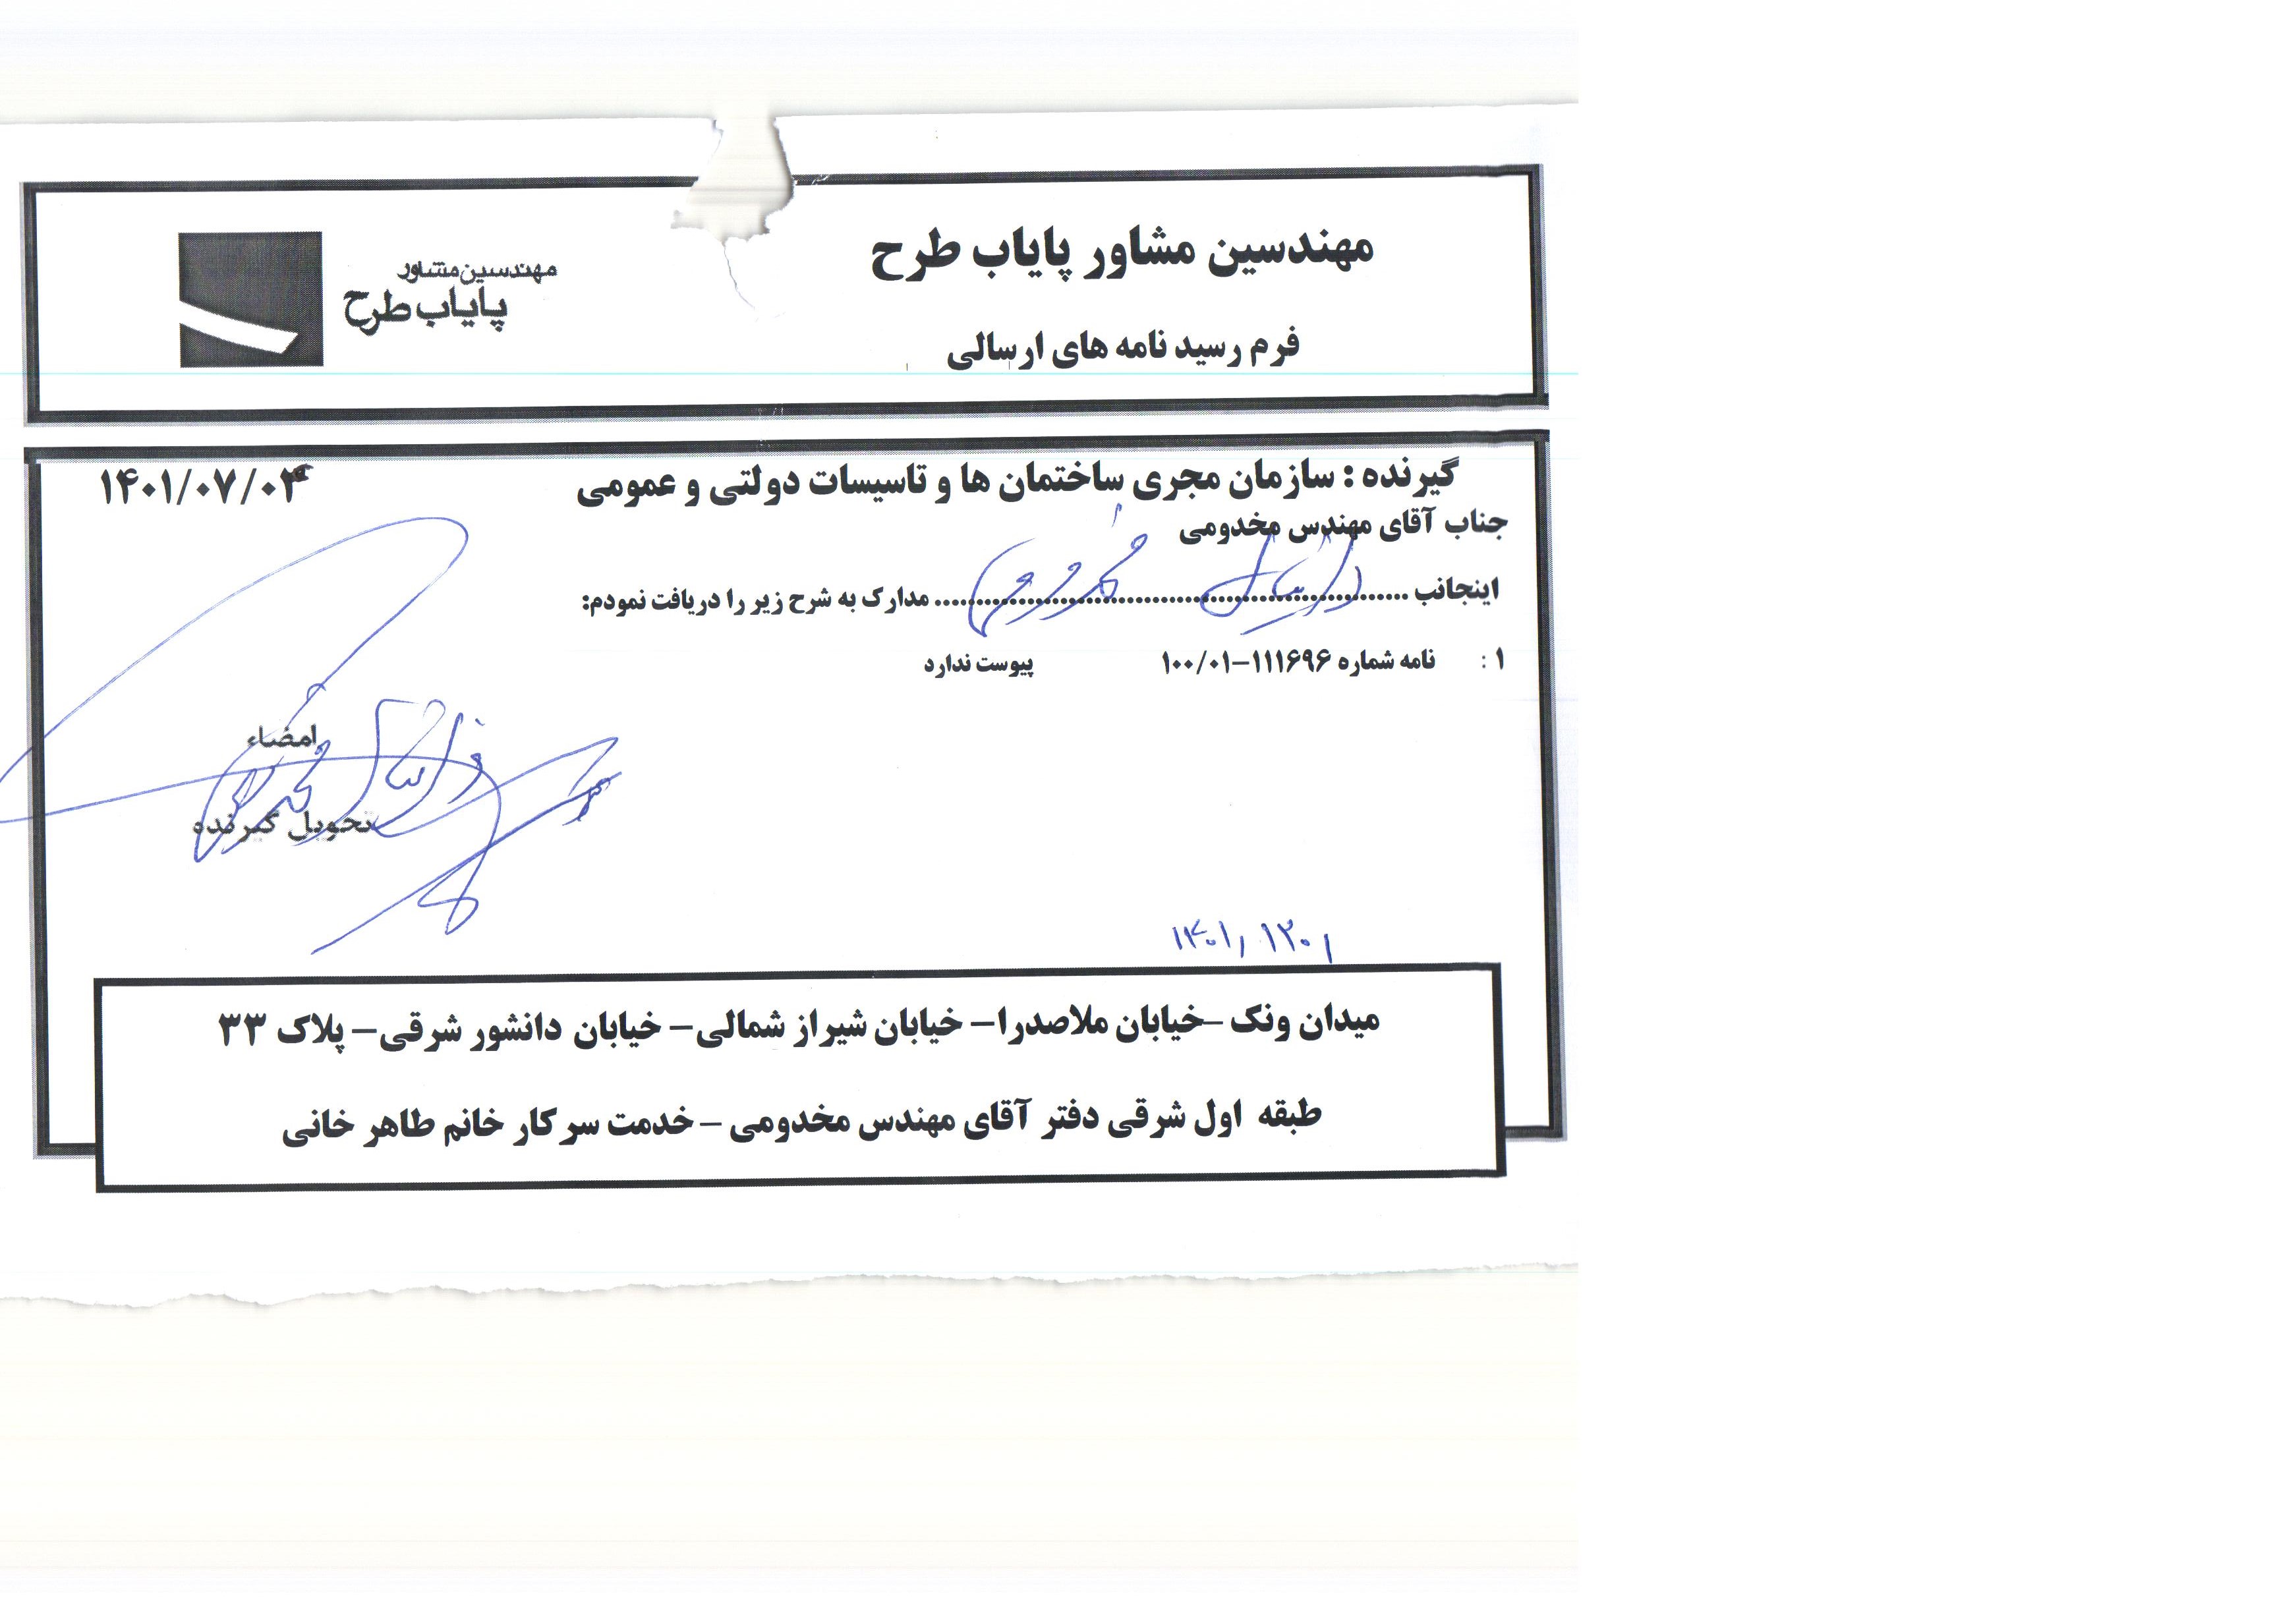 مهندسین مشاور پایاب طرح
مهندسین مشاور
پایاب طرح
فرم رسید نامه های ارسالی
گیرنده : سازمان مجری ساختمان ها و تاسیسات دولتی و عمومی
۱۴۰۱/۰۷/۰۴
جناب آقای مهندس مخدومی
اینجانب ........................................................ مدارک به شرح زیر را دریافت نمودم:
۱ : نامه شماره ۱۱۱۶۹۶-۱۰۰/۰۱ پیوست ندارد
امضاء
تحویل گیرنده
میدان ونک –خیابان ملاصدرا– خیابان شیراز شمالی– خیابان دانشور شرقی– پلاک ۳۳
طبقه اول شرقی دفتر آقای مهندس مخدومی – خدمت سرکار خانم طاهر خانی